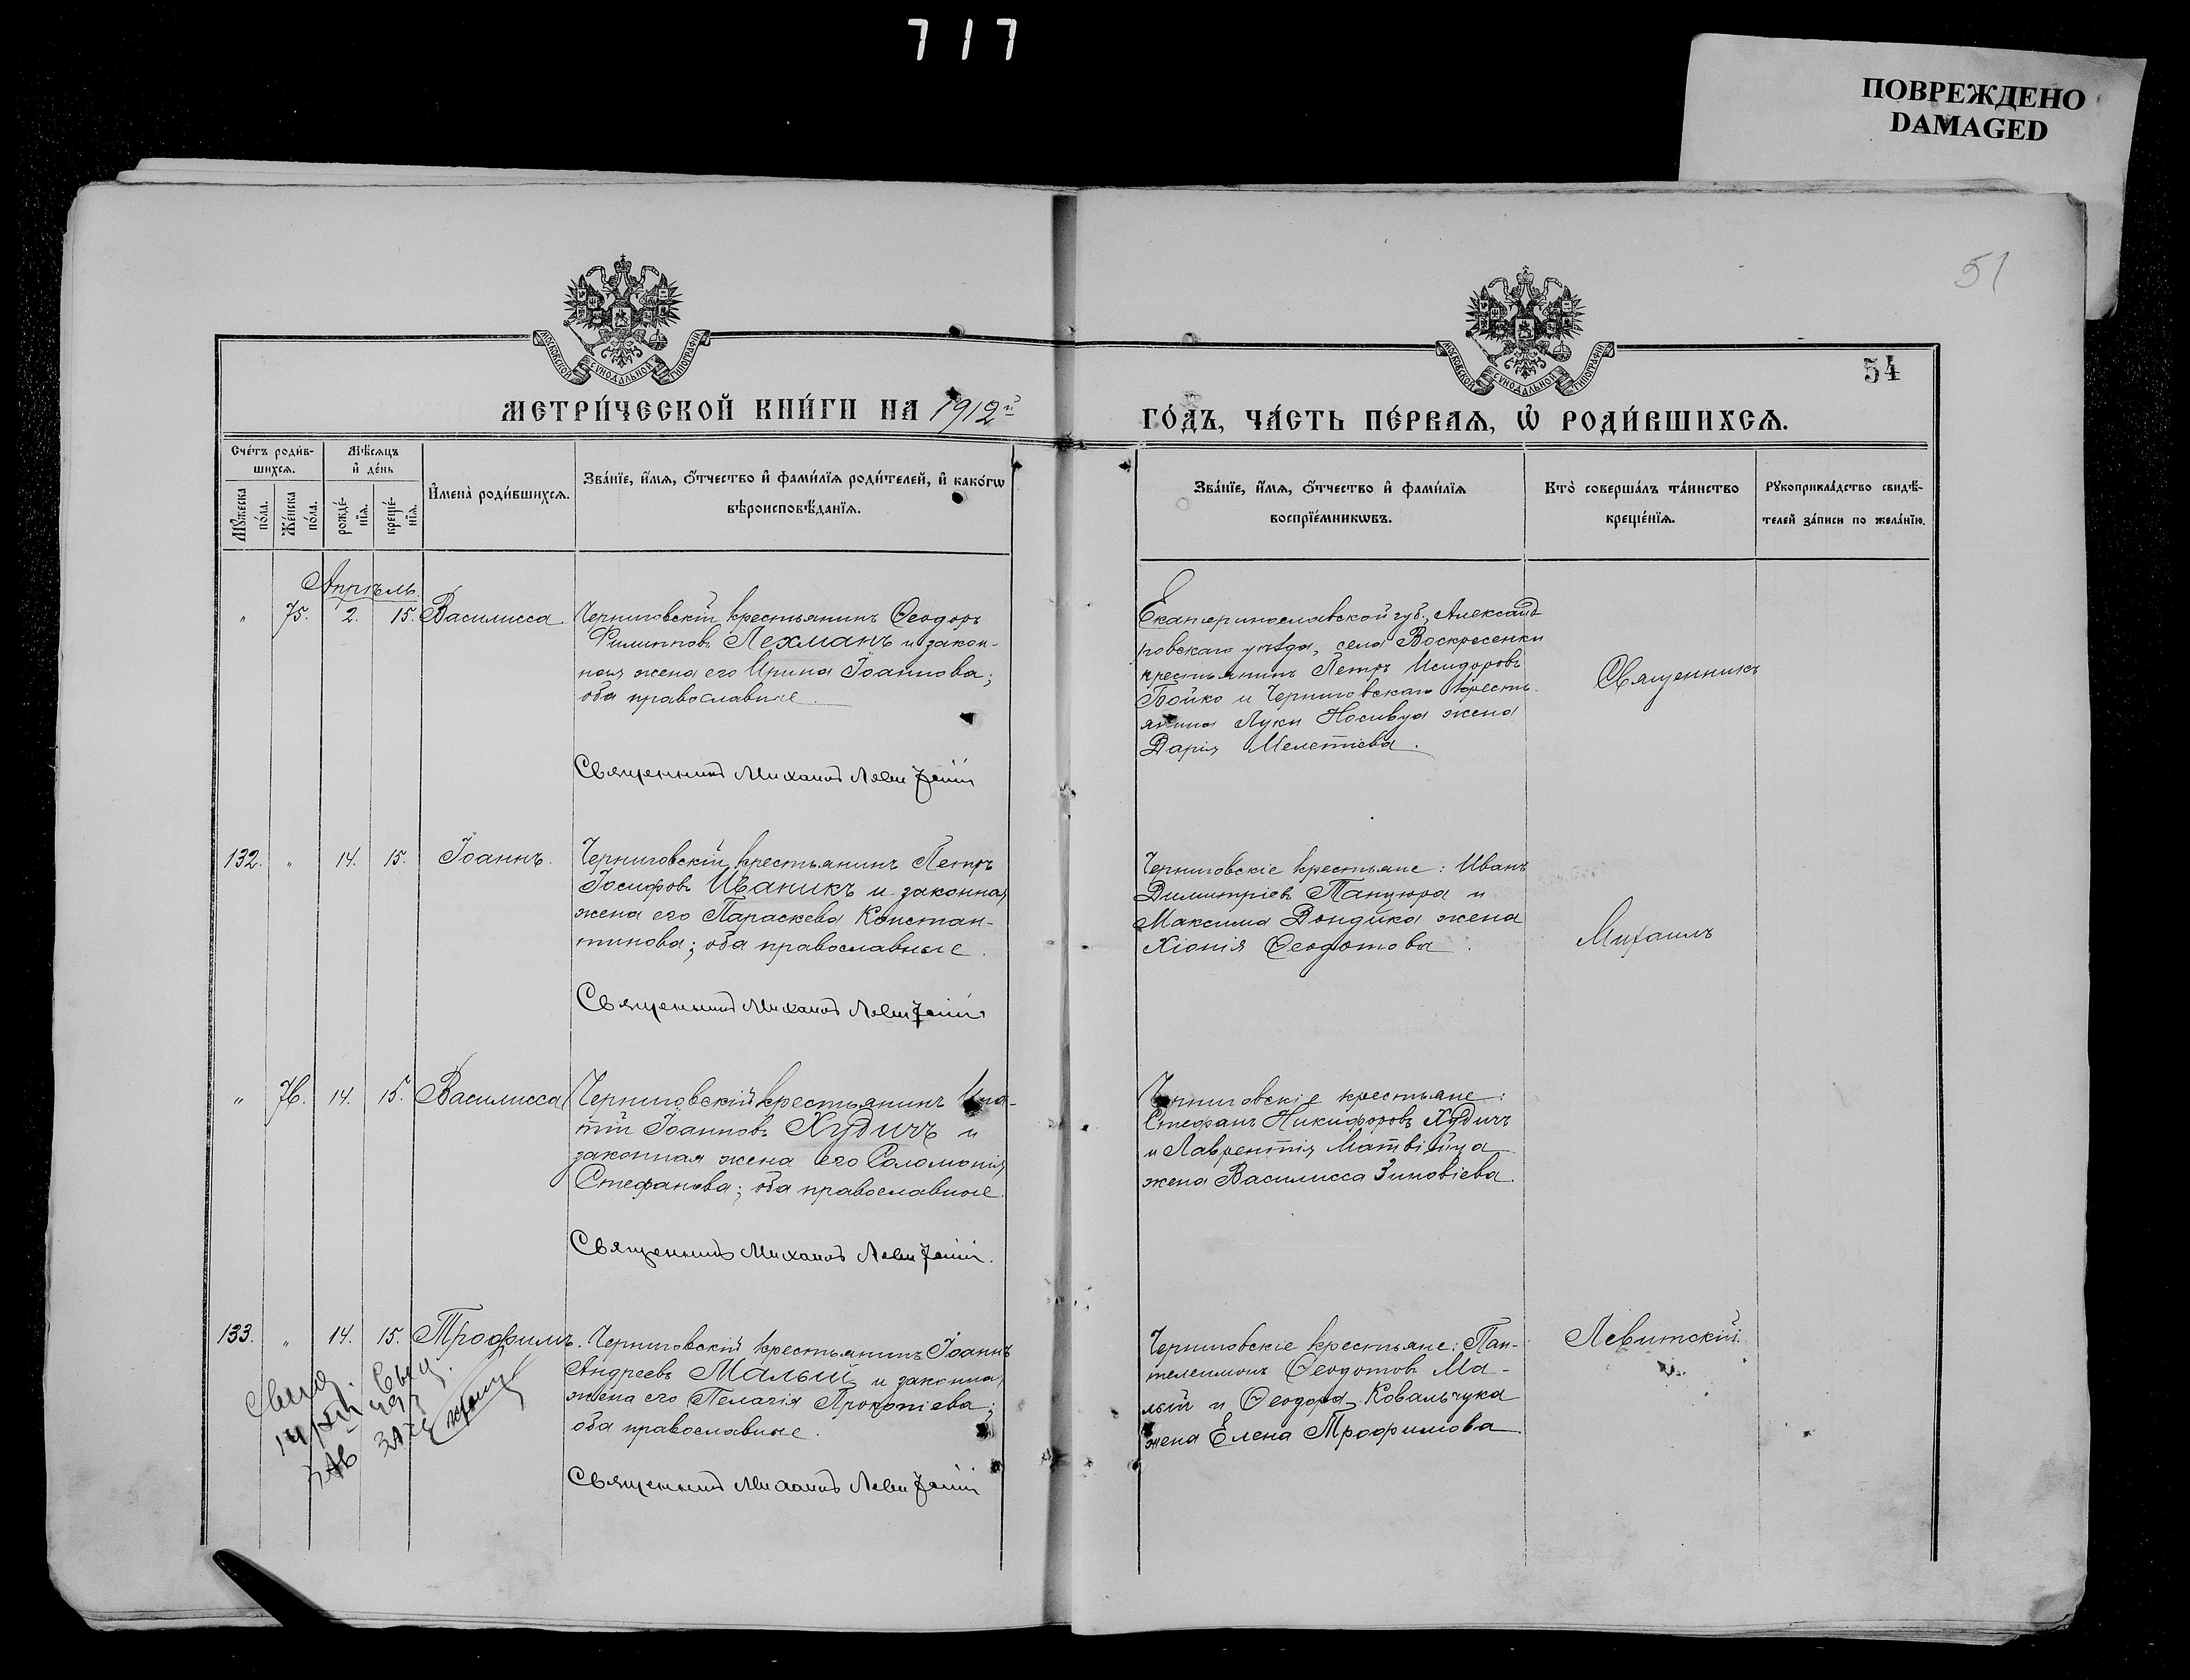 717
ПОВРЕЖДЕНО
DAMAGED
51
МОСКОВСКОЙ СѴНОДАЛЬНОЙ ТИПОГРАФІИ
МОСКОВСКОЙ СѴНОДАЛЬНОЙ ТИПОГРАФІИ
54
МЕТРИ́ЧЕСКОЙ КНИ́ГИ НА 1912й
ГО́ДЪ, ЧА́СТЬ ПЕ́РВАѦ, Ѡ҆ РОДИ́ВШИХСѦ.
Сче́тъ роди́в-
шихсѧ.
Мꙋ́жеска
по́ла.
Же́нска
по́ла.
Мѣ́сѧцъ
и҆ де́нь
рожде́-
нїѧ.
креще́-
нїѧ.
И҆мена̀ роди́вшихсѧ.
Зва́нїе, и҆́мѧ, ѻ҆́тчество и҆ фами́лїѧ роди́телей, и҆ како́гѡ
вѣроисповѣ́данїѧ.
Зва́нїе, и҆́мѧ, ѻ҆́тчество и҆ фами́лїѧ
воспрїе́мникѡвъ.
Кто̀ соверша́лъ та́инство
креще́нїѧ.
Рꙋкоприкла́дство свидѣ́-
телей за́писи по жела́нїю.
Апрѣль.
" 75. 2. 15. Василисса.
Черниговскій крестьянинъ Ѳеодоръ
Филипповъ Лехманъ и закон-
ная жена его Ирина Іоаннова;
оба православные.
Священникъ Михаилъ Левитскій
Екатеринославской губ., Александ-
ровскаго уѣзда, села Воскресенки
крестьянинъ Петръ Исидоровъ
Бойко и Черниговскаго кресть-
янина Луки Носивца жена
Дарія Мелетіева.
Священникъ
132. " 14. 15. Іоаннъ.
Черниговскій крестьянинъ Петръ
Іосифовъ Иваникъ и законная
жена его Параскева Констан-
тинова; оба православные.
Священникъ Михаилъ Левитскій
Черниговскіе крестьяне: Иванъ
Димитріевъ Танцюра и
Максима Дондика жена
Хіонія Ѳеодотова.
Михаилъ
" 76. 14. 15. Василисса
Черниговскій крестьянинъ Ипа-
тій Іоанновъ Худичъ и
законная жена его Соломонія
Стефанова; оба православные.
Священникъ Михаилъ Левитскій.
Черниговскіе крестьяне:
Стефанъ Никифоровъ Худичъ
и Лаврентія Матвійца
жена Василисса Зиновіева.
133. " 14. 15. Трофимъ.
Черниговскій крестьянинъ Іоаннъ
Андреевъ Малый и законная
жена его Пелагія Прокопіева;
оба православные.
Священникъ Михаилъ Левитскій
Черниговскіе крестьяне: Пан-
телеимонъ Ѳеодотовъ Ма-
лый и Ѳеодора Ковальчука
жена Елена Трофимова.
Левитскій.